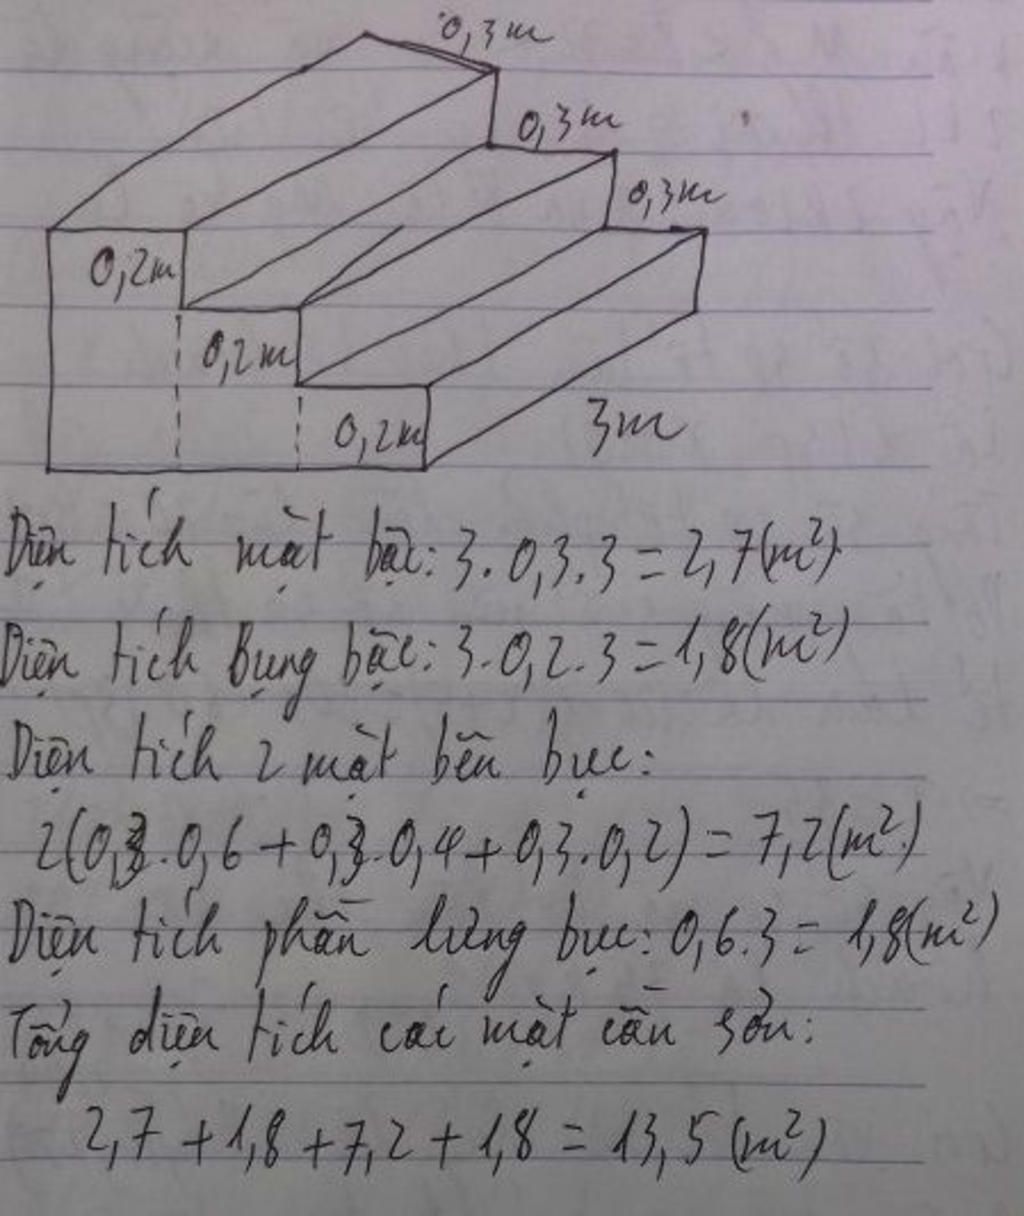 0,3m
0,3m
0,3m
0,2m
0,2m
0,2m
3m
Diện tích mặt bậc: 3.0,3.3=2,7(m²)
Diện tích Bụng bậc: 3.0,2.3=1,8(m²)
Diện tích 2 mặt bên bục:
2(0,3.0,6+0,3.0,4+0,3.0,2)=7,2(m²)
Diện tích phần lưng bục: 0,6.3=1,8(m²)
Tổng diện tích các mặt cần sơn:
2,7+1,8+7,2+1,8=13,5(m²)